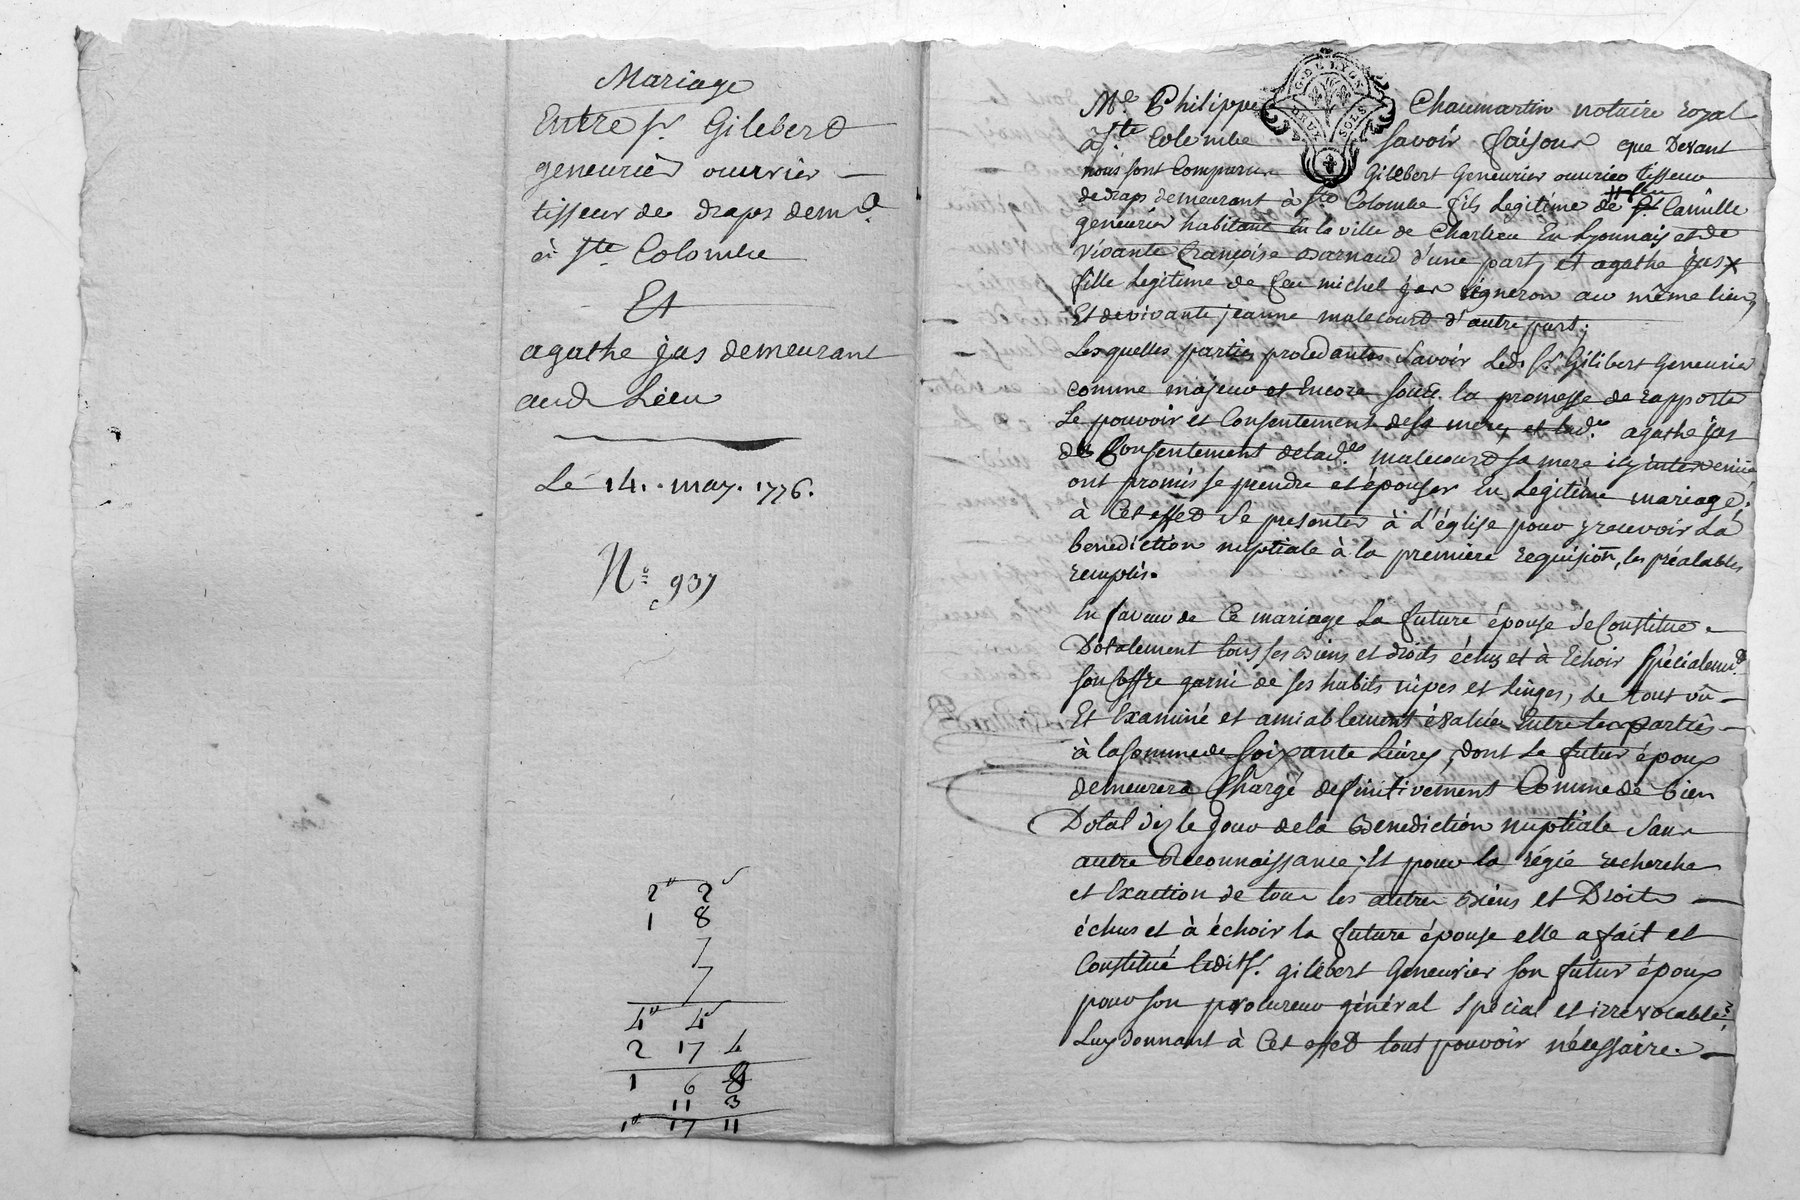 Mariage
Entre Sr. Gilebert
geneurier ouvrier
tisseur de draps demt.
à Ste Colombe
Et
agathe jas demeurant
aud. Lieu
Le 14. may. 1776.
No. 937
2 2
1 8
7
7
4 4
2 17 4
1 6 8
11 3
1 17 11
G. DE LYON
DEUX SOLS
Me Philippe Chaumartin notaire royal
à Ste Colombe savoir faisons que Devant
nous sont Comparus Gilebert Geneurier ouvrier tisseur
de draps demeurant à Ste Colombe fils Legitime de feu Sr Camille
geneurier habitant En la ville de Charlieu En Lyonnais et de
vivante françoise Barnaud d'une part, et agathe jas
fille Legitime de feu michel jas vigneron au même lieu,
Et de vivante jeanne malecourt d'autre part;
Lesquelles parties procedantes Savoir Led. Sr. Gilibert Geneurier
comme majeur et Encore sous la promesse de rapporter
Le pouvoir et Consentement de sa mere, et lad. agathe jas
du Consentement de lad. malecourt sa mere icy intervenue
ont promis se prendre et épouser En Legitime mariage,
à Cet effet Se presenter à L'église pour y recevoir La
benediction nuptiale à la premiere requision, les préalables
remplis.
En faveur de Ce mariage La future épouse se Constitue
Dotalement tous ses Biens et droits échus et à Echoir Spécialemt.
son Coffre garni de ses habits nipes et Linges, Le tout vû
Et Examiné et amiablement évalué Entre les parties
à la somme de Soixante Livres, dont Le futur époux
demeurera Chargé definitivement Comme de bien
Dotal dès le jour de la Benediction nuptiale Sans
autre Reconnaissance; Et pour la régie recherche
et Exaction de tous les autres Biens et Droits
échus et à échoir la future épouse elle a fait et
Constitué ledit Sr. gilebert Geneurier son futur époux
pour son procureur général Spécial et irrevocable,
Luy donnant à Cet effet tout pouvoir nécessaire.